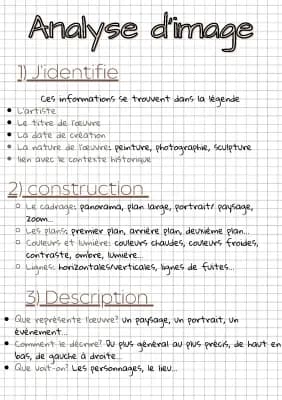 Analyse d'image
1) J'identifie
Ces informations se trouvent dans la légende
L'artiste
Le titre de l'œuvre
La date de création
La nature de l'œuvre: peinture, photographie, sculpture
lien avec le contexte historique
2) construction
Le cadrage: panorama, plan large, portrait/ paysage,
zoom...
Les plans: premier plan, arrière plan, deuxième plan...
Couleurs et lumière: couleurs chaudes, couleurs froides,
contraste, ombre, lumière...
Lignes: horizontales/verticales, lignes de fuites...
3) Description
Que représente l'œuvre? Un paysage, un portrait, un
évènement...
Comment le décrire? Du plus général au plus précis, de haut en
bas, de gauche à droite...
Que voit-on? Les personnages, le lieu...